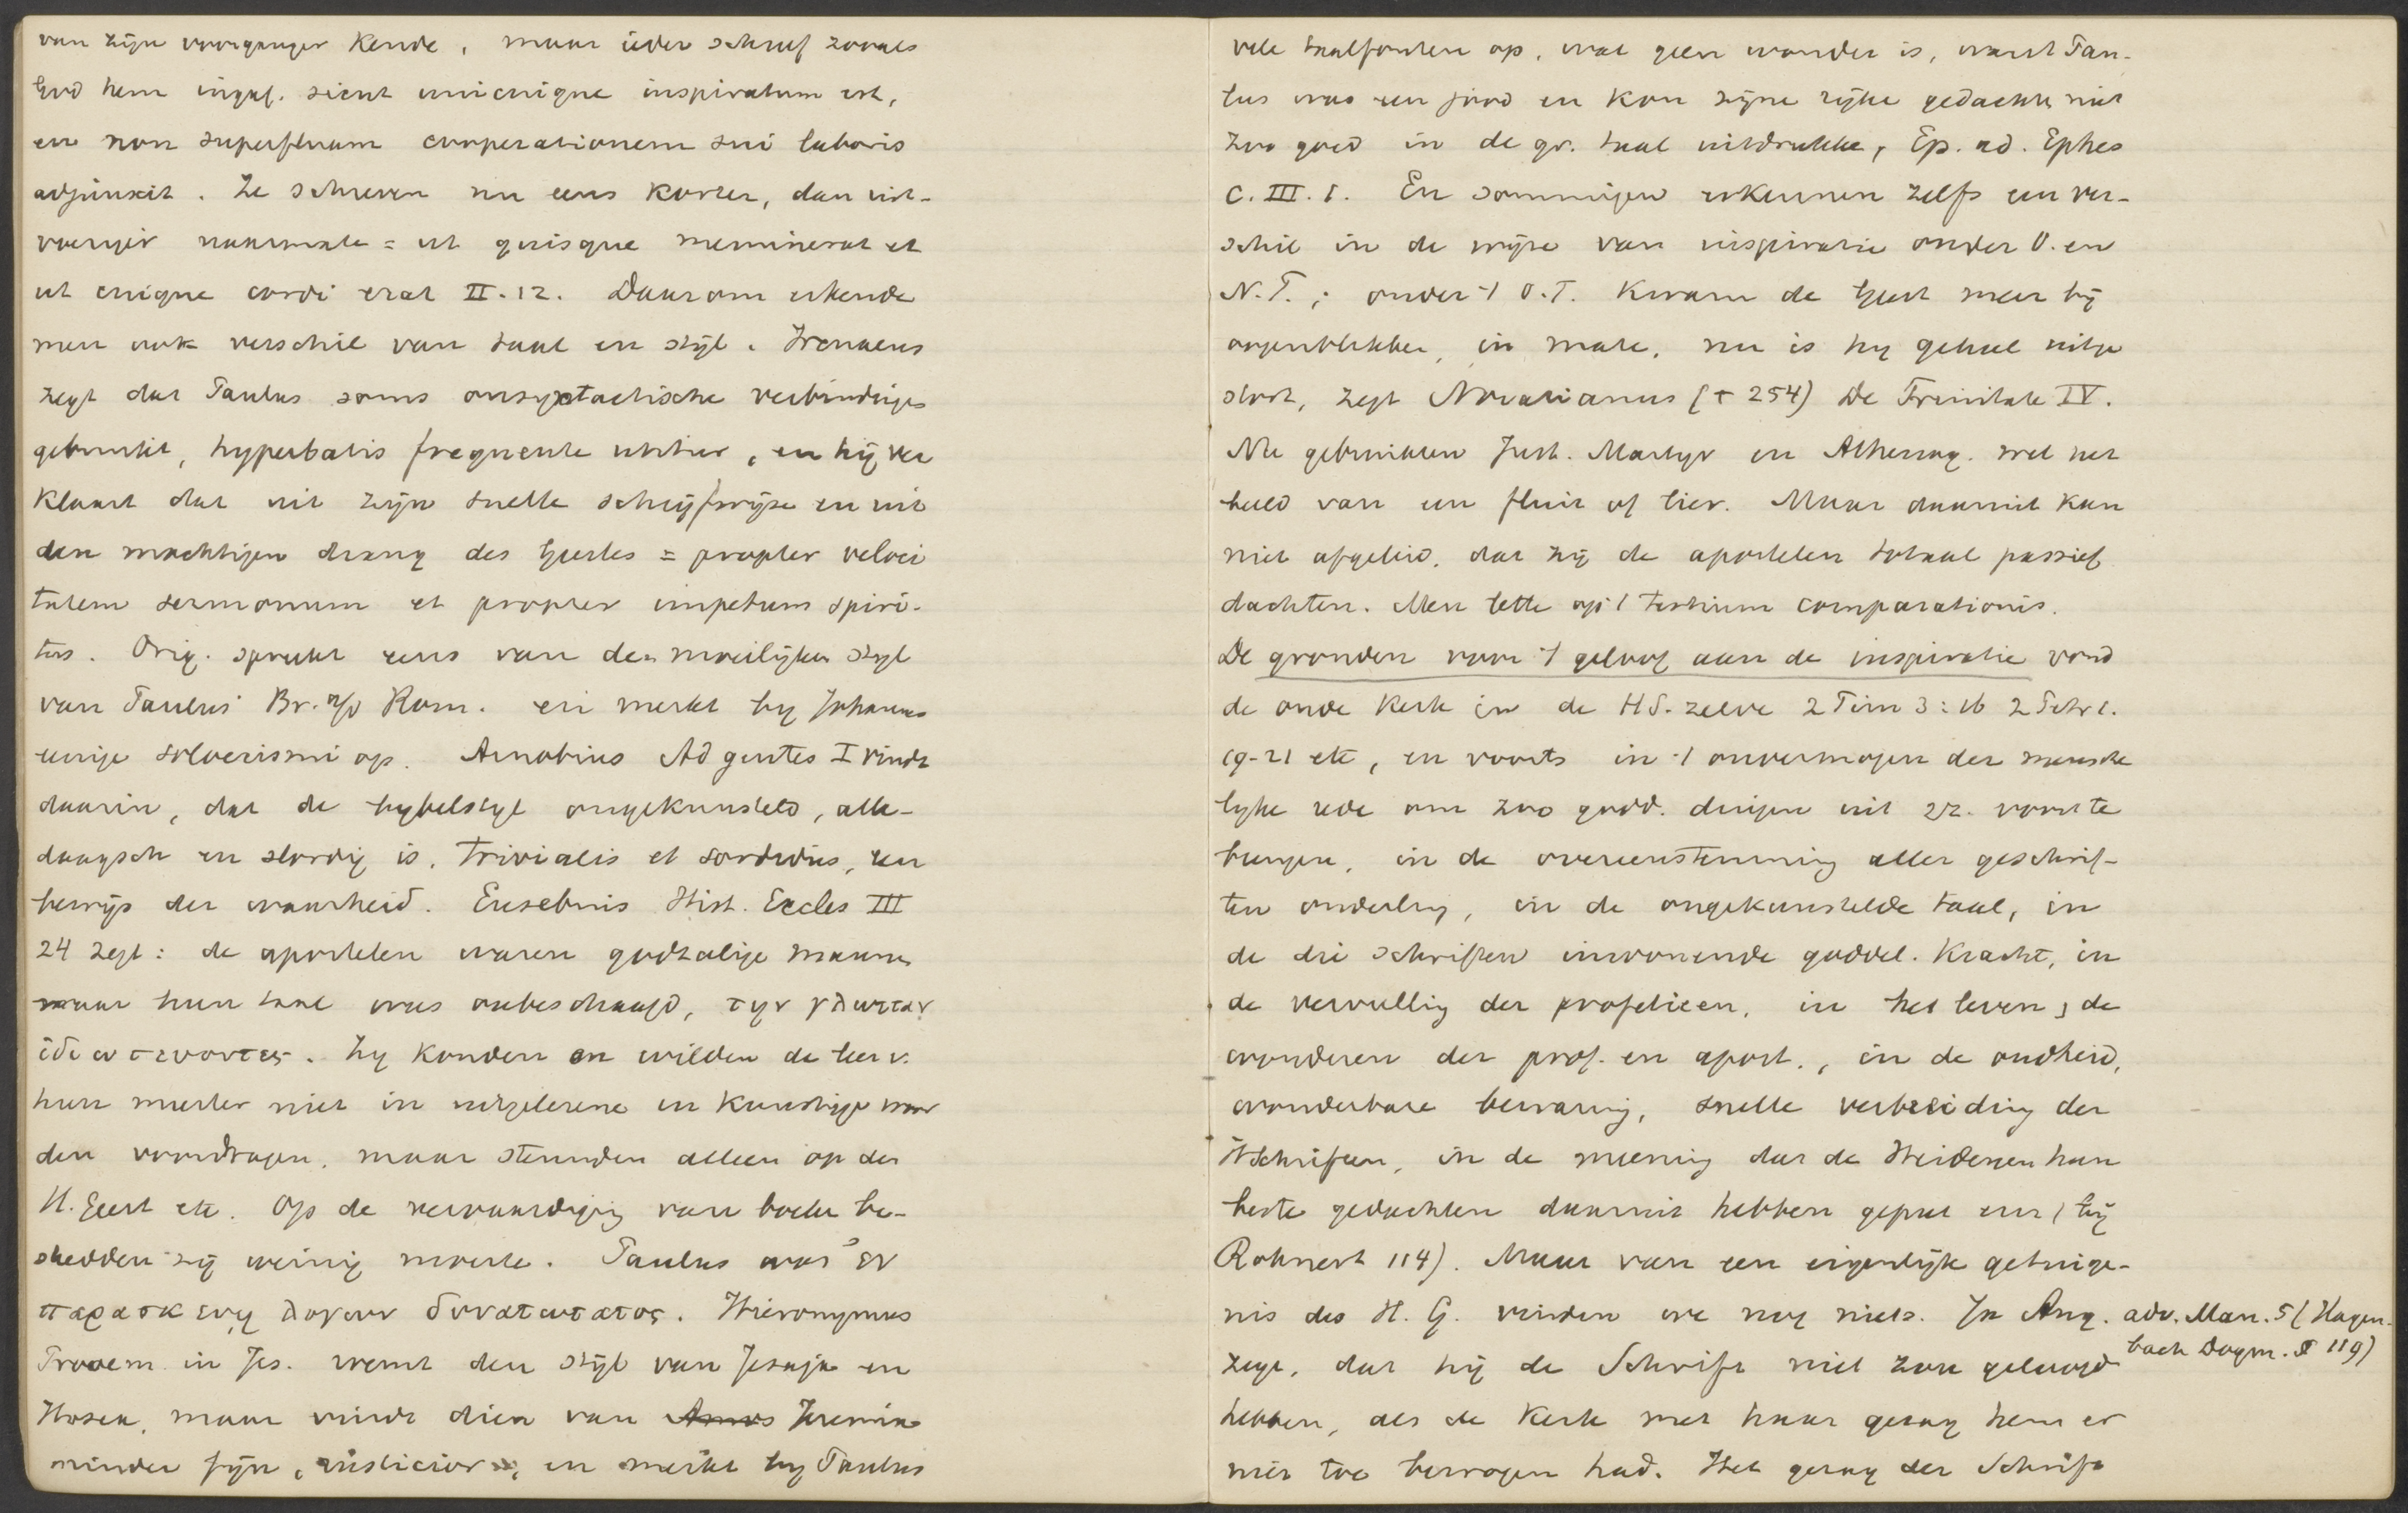 van zijn voorganger kende, maar ieder schreef zooals
God hem ingaf. sicut unicuique inspiratum est,
en non superfluam cooperationem sui laboris
adjunxit. Ze schreven nu eens korter, dan uit-
voeriger naarmate = ut quisque meminerat et
ut cuique cordi erat II.12. Daarom erkende
men ook verschil van taal en stijl. Irenaeus
zegt dat Paulus soms onsyntactische verbindingen
gebruikt, hyperbatis frequenter utitur, en hij ver
klaart dat uit zijn snelle schrijfwijze en uit
den machtigen drang des Geestes = propter veloci
tatem sermonum et propter impetum spiri-
tus. Orig. spreekt eens van den moeilijken stijl
van Paulus' Br. a/d Rom. en merkt by Johannes
eenige soloecismi op. Arnobius Ad gentes I vindt
daarin, dat de bybelstyl ongekunsteld, alle-
daagsch en slordig is, trivialis et sordidus, een
bewijs der waarheid. Eusebius Hist. Eccles III
24 zegt: de apostelen waren godzalige mannen
maar hun taal was onbeschaafd, την γλωτταν
ἰδιωτευοντες. Zy konden en wilden de leer v.
hun meester niet in uitgelezene en kunstige woor
den voordragen, maar steunden alleen op den
H. Geest etc. Op de vervaardiging van boeken be-
steedden zij weinig moeite. Paulus was ἐν
παρασκευῃ λογων δυνατωτατος. Hieronymus
Prooem in Jes. roemt den stijl van Jesaja en
Hosea, maar vindt dien van Amos Jeremia
minder fijn, rusticior, en merkt by Paulus
vele taalfouten op, wat geen wonder is, want Pau-
lus was een jood en kon zijne rijke gedachten niet
zoo goed in de gr. taal uitdrukken, Ep. ad. Ephes
C. III. 1. En sommigen erkennen zelfs een ver-
schil in de wijze van inspiratie onder O. en
N.T.; onder 't O.T. kwam de Geest meer bij
oogenblikken, in mate, nu is hy geheel uitge
stort, zegt Novatianus († 254) De Trinitate IV.
Nu gebruikten Just. Martyr en Athenag. wel het
beeld van een fluit of lier. Maar daaruit kan
niet afgeleid, dat zij de apostelen totaal passief
dachten. Men lette op 't tertium comparationis.
De gronden voor 't geloof aan de inspiratie vond
de oude Kerk in de HS. zelve 2 Tim 3:16 2 Petr 1.
19-21 etc, en voorts in 't onvermogen der mensche
lyke rede om zoo godd. dingen uit zz. voort te
brengen, in de overeenstemming aller geschrif-
ten onderling, in de ongekunstelde taal, in
de die Schriften inwonende goddel. kracht, in
de vervulling der profetieen, in het leven, de
wonderen der prof. en apost., in de oudheid,
wonderbare bewaring, snelle verbreiding der
HSchriften, in de meening dat de Heidenen hun
beste gedachten daaruit hebben geput enz (bij
Rohnert 114). Maar van een eigenlijk getuige-
nis des H. G. vinden we nog niets. Ja Aug. adv. Man. 5 (Hagen-
bach Dogm. I 119)
zegt, dat hij de Schrift niet zou geloofd
hebben, als de Kerk met haar gezag hem er
niet toe bewogen had. Het gezag der Schrift